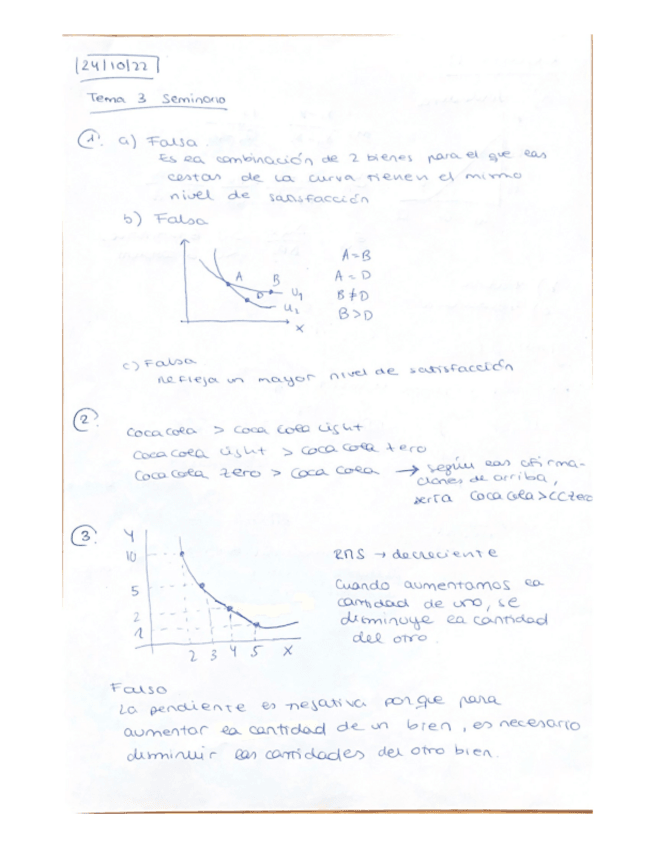 24/10/22
Tema 3 Seminario
1. a) Falsa.
Es la combinación de 2 bienes para el que las
cestas de la curva tienen el mismo
nivel de satisfacción
b) Falsa
A=B
A=D
B≠D
B>D
A B D U1 U2 X
c) Falsa
Refleja un mayor nivel de satisfacción
2. Coca cola > coca cola light
Coca cola light > coca cola zero
Coca cola zero > coca cola → según las afirma-
ciones de arriba,
sería coca cola > CC zero
3. Y
10
5
2
1
2 3 4 5 X
RMS → decreciente
Cuando aumentamos la
cantidad de uno, se
disminuye la cantidad
del otro.
Falso
La pendiente es negativa porque para
aumentar la cantidad de un bien, es necesario
disminuir las cantidades del otro bien.